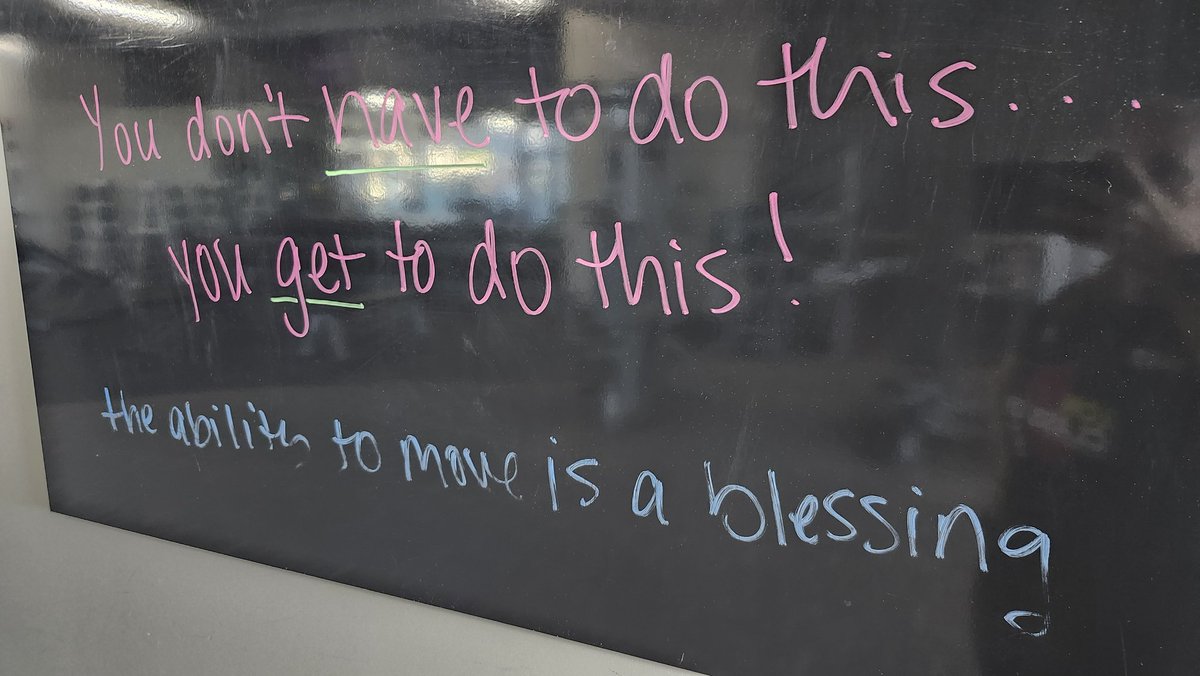 You don't have to do this....
you get to do this!
the ability to move is a blessing